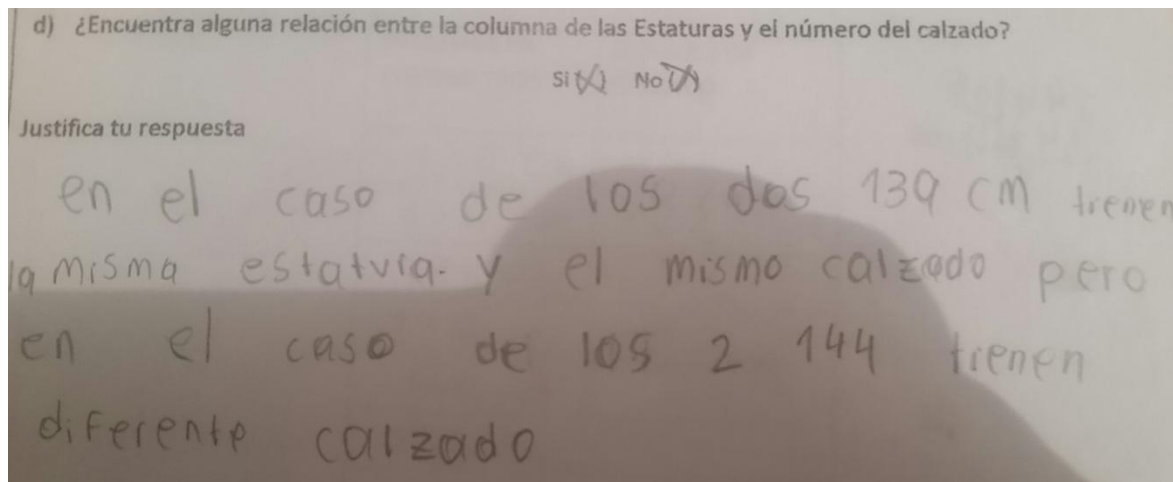 d) ¿Encuentra alguna relación entre la columna de las Estaturas y el número del calzado?
Si (X) No (X)
Justifica tu respuesta
en el caso de los dos 139 cm tienen
la misma estatura. y el mismo calzado pero
en el caso de los 2 144 tienen
diferente calzado